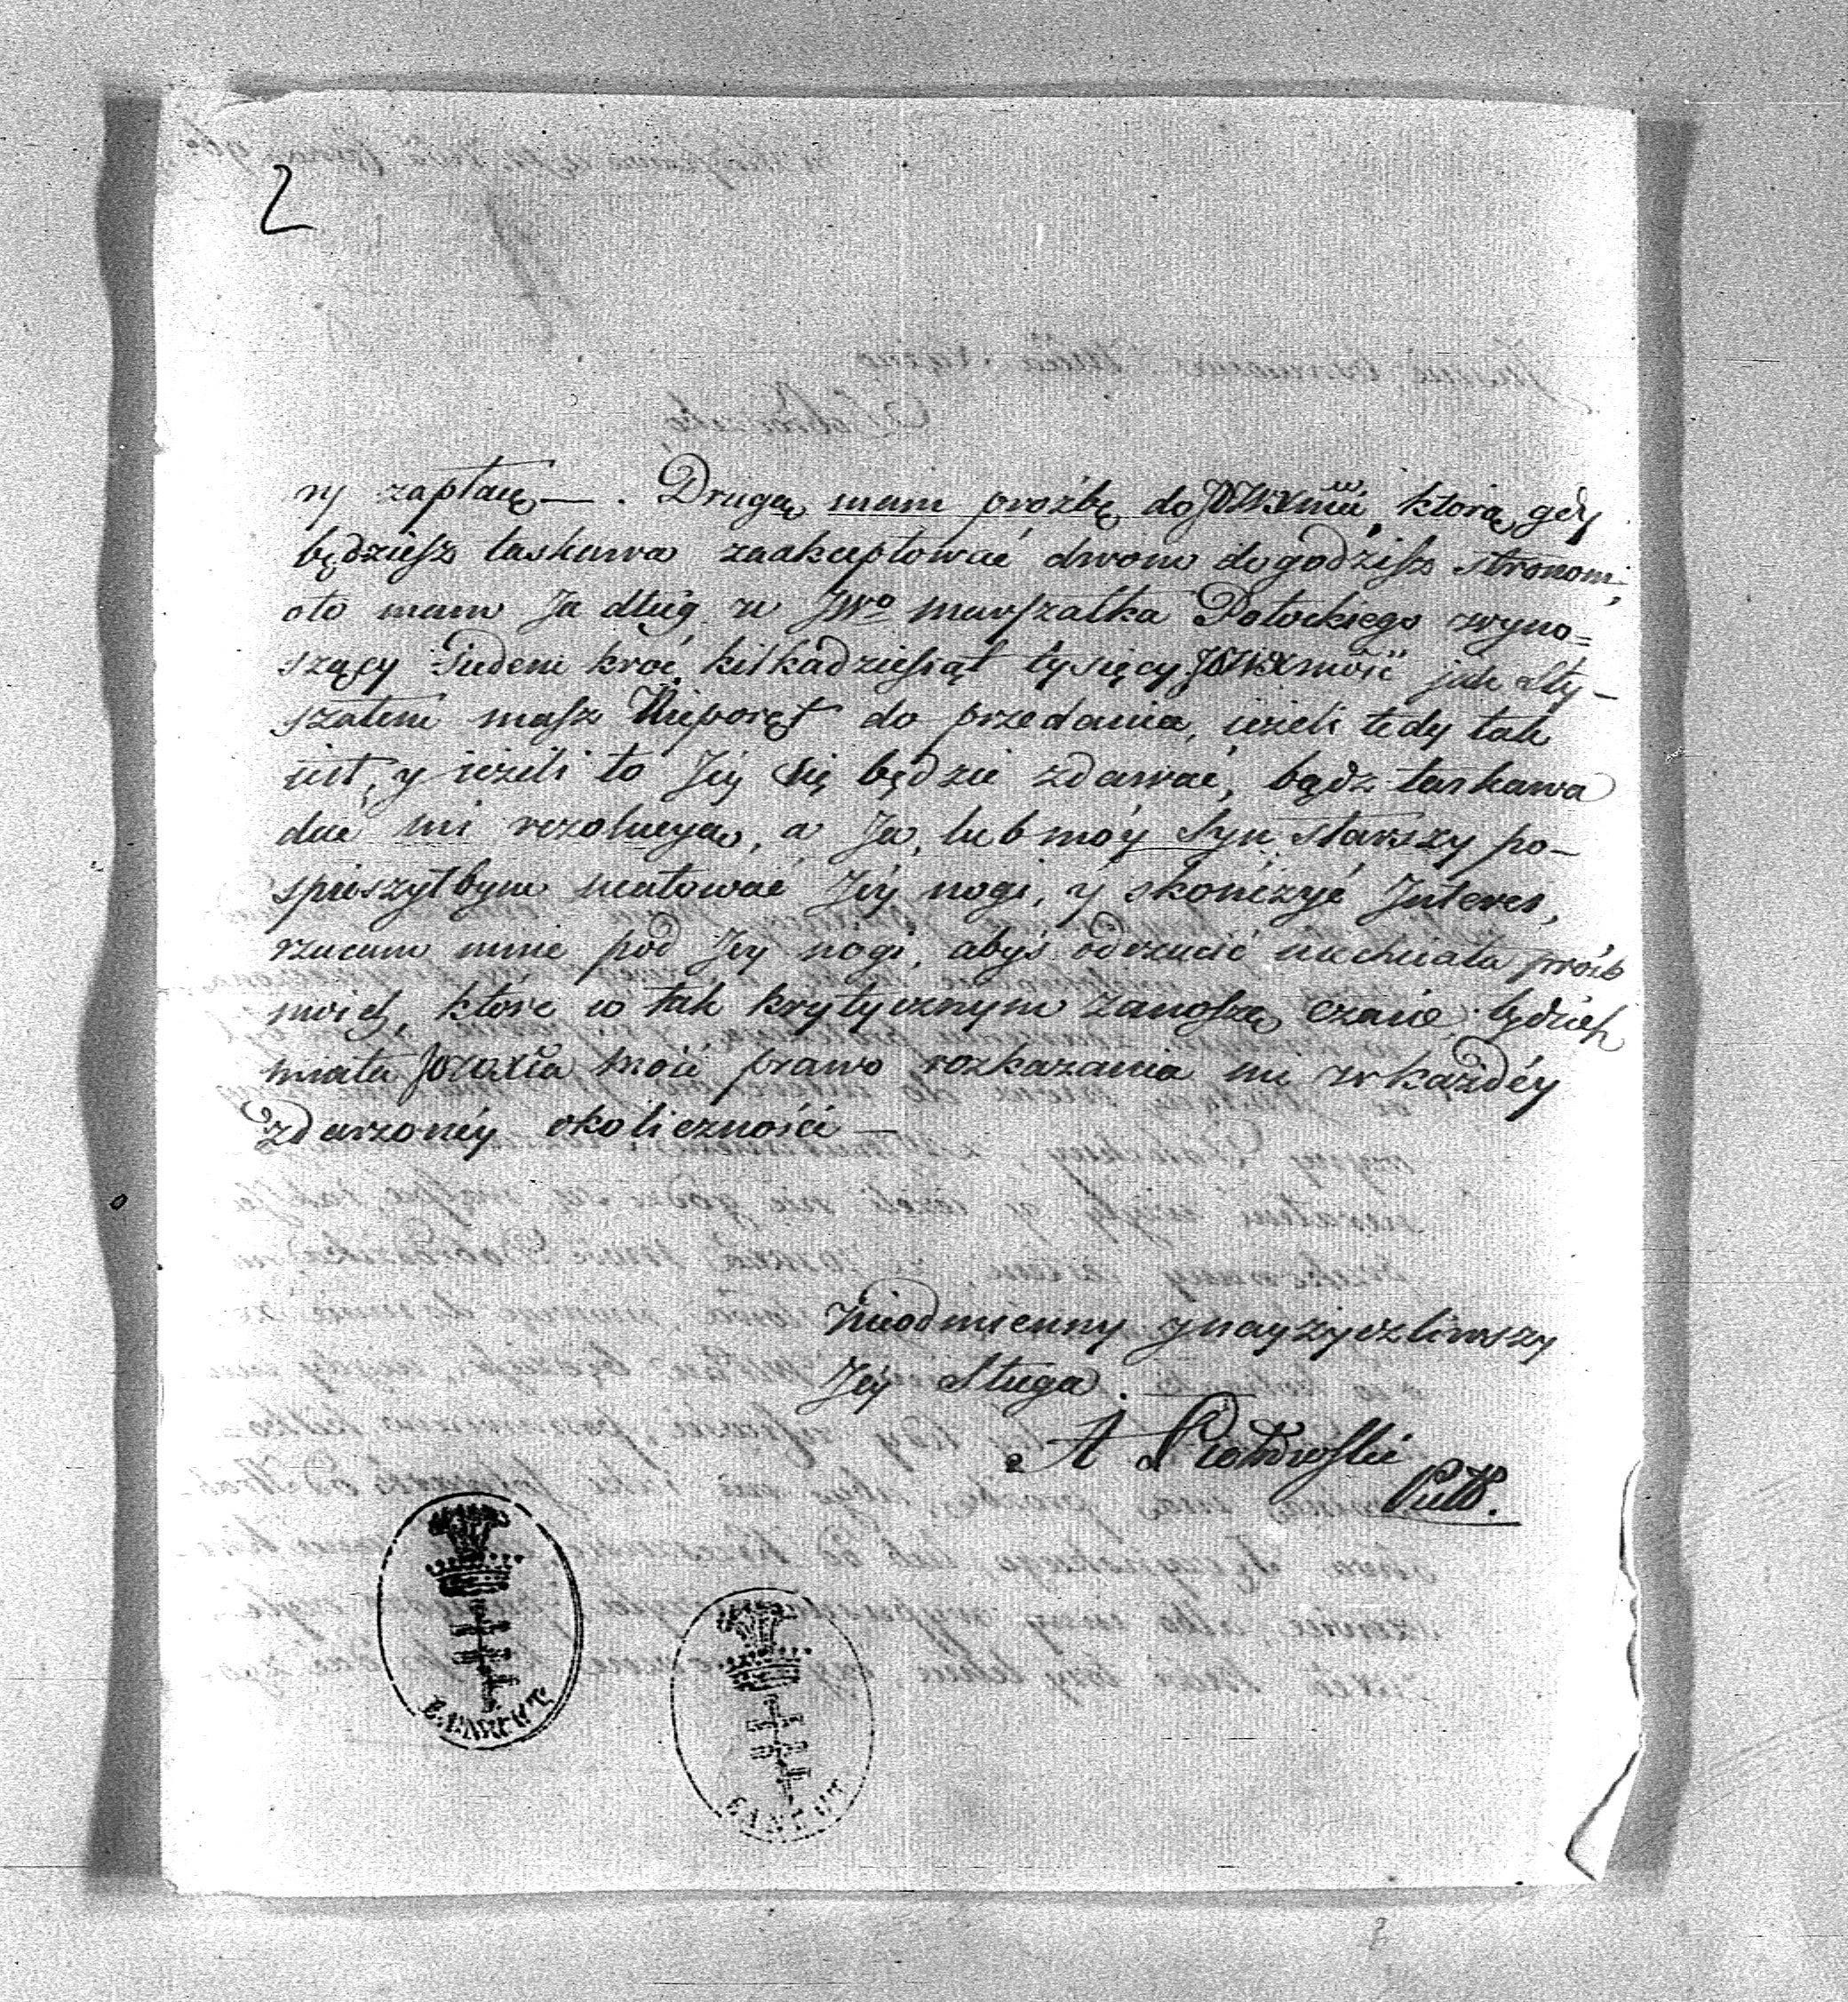 2
ry zapłacę —. Drugą mam proźbę do JOWXmci, którą gdy
będziesz łaskawa zaakceptować dwom dogodzisz stronom;
oto mam Ja dług u JWo Marszałka Potockiego wyno=
szący siedem kroć kilkadziesiąt tysięcy JOWXmość jak sły-
szałem masz Nieporęt do przedania, ieżeli tedy tak
iest, y ieżeli to Jey się będzie zdawać, bądz łaskawa
dać mi rezolucyą, a Ja, lub móy Syn starszy po-
spieszyłbym ucałować Jéy nogi, y skończyć Interes,
rzucam mnie pod Jey nogi, abyś odrzucić niechciała proźb
moich, które w tak krytycznym zanoszę czasie, będziesz
miała mość prawo rozkazania mi w każdéy
zdarzonéy okoliczności —
Nieodmienny y nayżyczliwszy
Jéy Sługa.
A
B. ŁAŃCUT
ŁAŃCUT